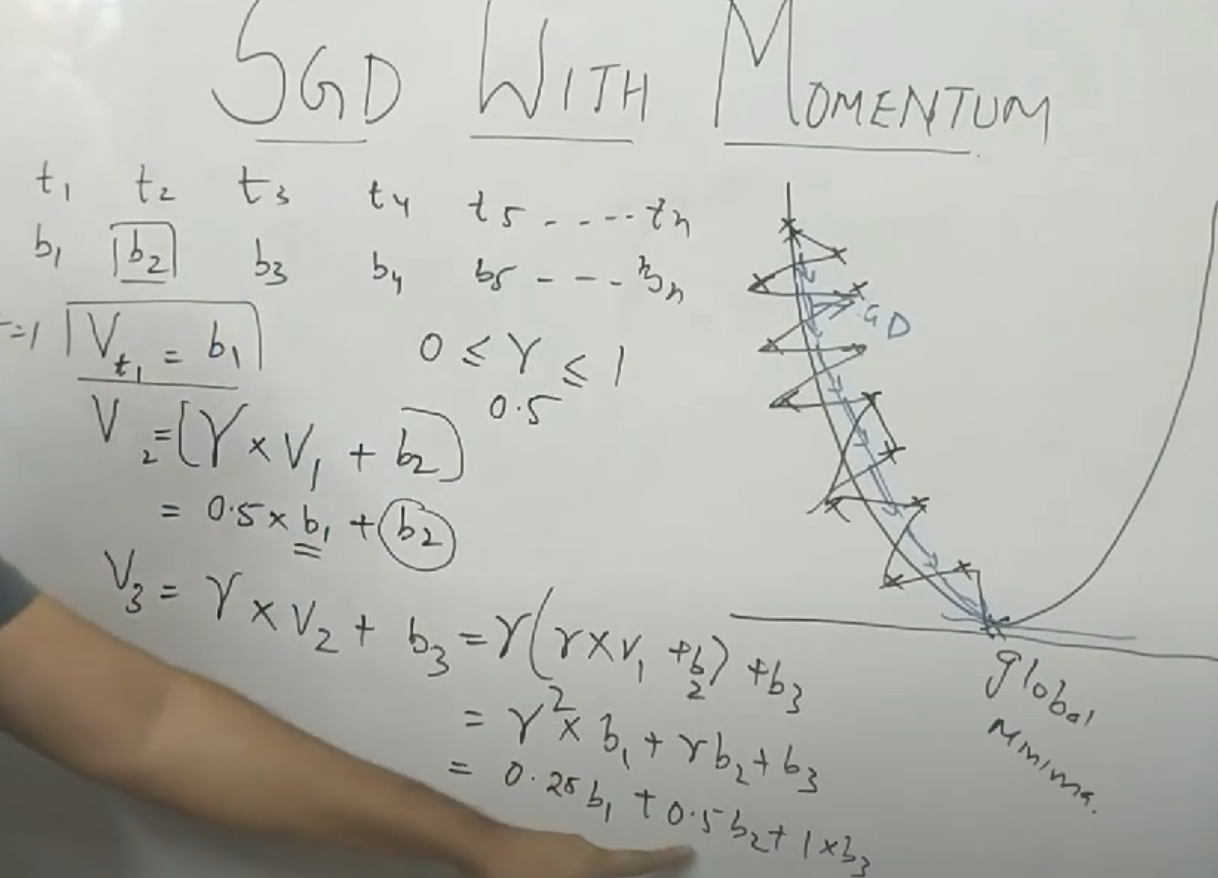 SGD WITH MOMENTUM
t₁ t₂ t₃ t₄ t₅ - - - - - tₙ
b₁ b₂ b₃ b₄ b₅ - - - bₙ
=1 Vₜ₁ = b₁
0 ≤ γ ≤ 1
0.5
V₂ = [γ × V₁ + b₂]
= 0.5 × b₁ + b₂
V₃ = γ × V₂ + b₃ = γ(γ × V₁ + b₂) + b₃
= γ² × b₁ + γb₂ + b₃
= 0.25b₁ + 0.5b₂ + 1 × b₃
GD
Global
Minima.